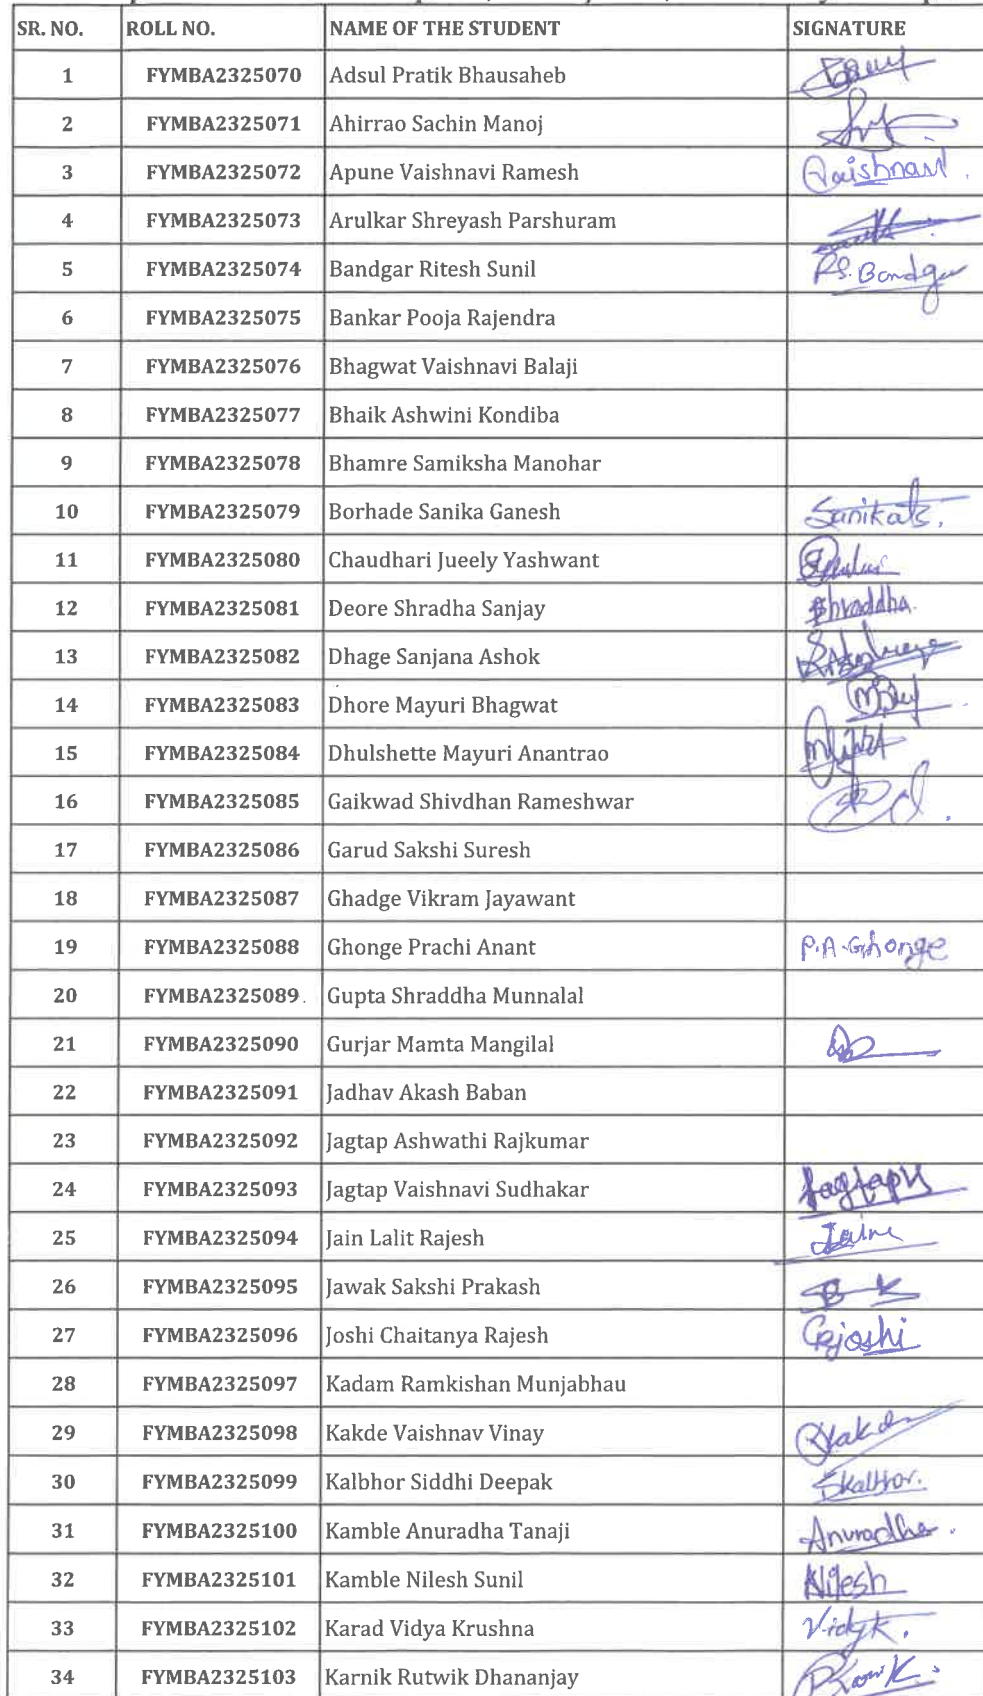 SR. NO. ROLL NO. NAME OF THE STUDENT SIGNATURE
1 FYMBA2325070 Adsul Pratik Bhausaheb
2 FYMBA2325071 Ahirrao Sachin Manoj
3 FYMBA2325072 Apune Vaishnavi Ramesh Vaishnavi
4 FYMBA2325073 Arulkar Shreyash Parshuram
5 FYMBA2325074 Bandgar Ritesh Sunil
6 FYMBA2325075 Bankar Pooja Rajendra
7 FYMBA2325076 Bhagwat Vaishnavi Balaji
8 FYMBA2325077 Bhaik Ashwini Kondiba
9 FYMBA2325078 Bhamre Samiksha Manohar
10 FYMBA2325079 Borhade Sanika Ganesh
11 FYMBA2325080 Chaudhari Jueely Yashwant
12 FYMBA2325081 Deore Shradha Sanjay Shraddha.
13 FYMBA2325082 Dhage Sanjana Ashok
14 FYMBA2325083 Dhore Mayuri Bhagwat
15 FYMBA2325084 Dhulshette Mayuri Anantrao
16 FYMBA2325085 Gaikwad Shivdhan Rameshwar
17 FYMBA2325086 Garud Sakshi Suresh
18 FYMBA2325087 Ghadge Vikram Jayawant
19 FYMBA2325088 Ghonge Prachi Anant P.A.Ghonge
20 FYMBA2325089 Gupta Shraddha Munnalal
21 FYMBA2325090 Gurjar Mamta Mangilal
22 FYMBA2325091 Jadhav Akash Baban
23 FYMBA2325092 Jagtap Ashwathi Rajkumar
24 FYMBA2325093 Jagtap Vaishnavi Sudhakar
25 FYMBA2325094 Jain Lalit Rajesh
26 FYMBA2325095 Jawak Sakshi Prakash
27 FYMBA2325096 Joshi Chaitanya Rajesh CRjoshi
28 FYMBA2325097 Kadam Ramkishan Munjabhau
29 FYMBA2325098 Kakde Vaishnav Vinay
30 FYMBA2325099 Kalbhor Siddhi Deepak Skalbhor.
31 FYMBA2325100 Kamble Anuradha Tanaji Anuradha.
32 FYMBA2325101 Kamble Nilesh Sunil Nilesh
33 FYMBA2325102 Karad Vidya Krushna
34 FYMBA2325103 Karnik Rutwik Dhananjay